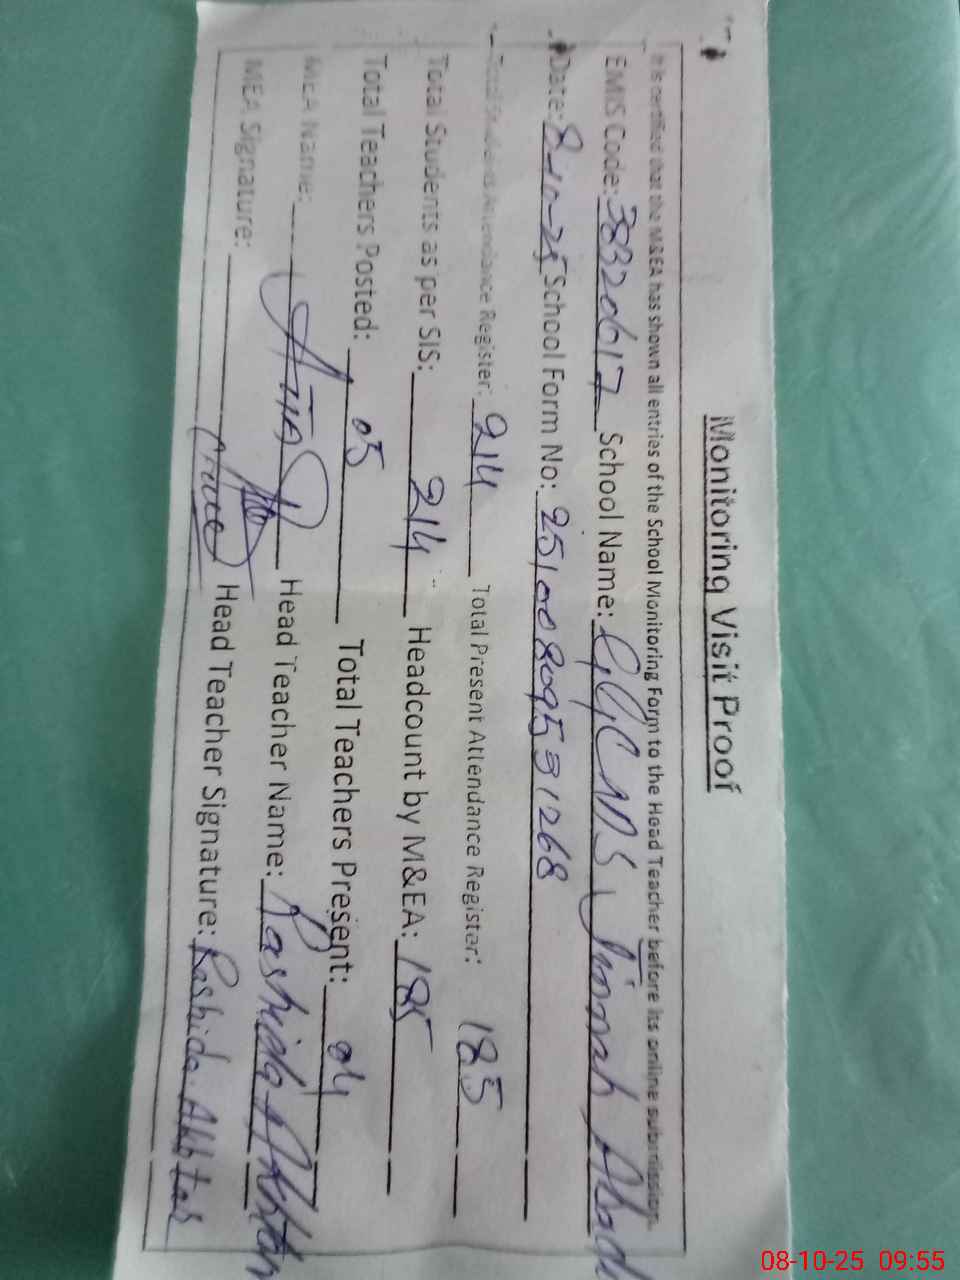 Monitoring Visit Proof
It is certified that the M&EA has shown all entries of the School Monitoring Form to the Head Teacher before its online submission.
EMIS Code: 38320617 School Name: GGCMS Jinnah Abad
Date: 8-10-25 School Form No: 25100809531268
Total Students Attendance Register: 214 Total Present Attendance Register: 185
Total Students as per SIS: 214 Headcount by M&EA: 185
Total Teachers Posted: 05 Total Teachers Present: 04
MEA Name: Head Teacher Name: Rashida Akhtar
MEA Signature: Head Teacher Signature: Rashida Akhtar
08-10-25 09:55